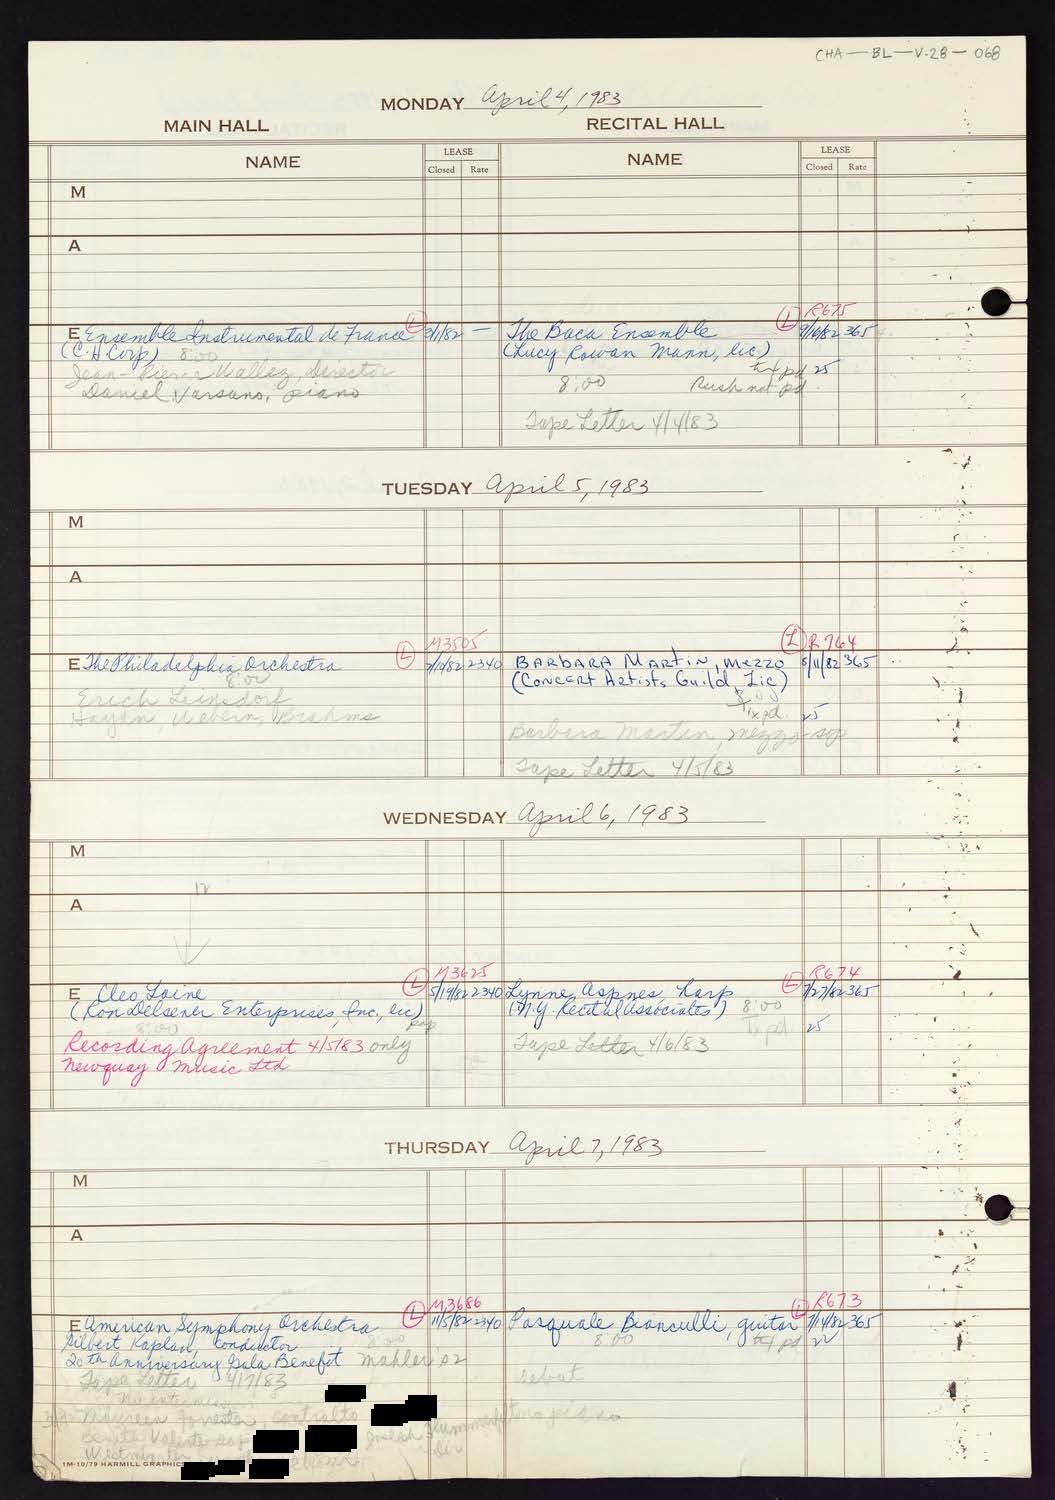 CHA-BL-V.28-068
MONDAY April 4, 1983
MAIN HALL
RECITAL HALL
NAME
LEASE
Closed Rate
NAME
LEASE
Closed Rate
M
A
L R675
E Ensemble Instrumental de France L 3/1/82 —
(C.H. Corp) 8:00
Jean-Pierre Wallez, director
Daniel Varsano, piano
The Baca Ensemble 9/6/82 365
(Lucy Rowan Mann, lic)
txf pd 25
8:00 Rush not pd.
Tape Letter 4/4/83
TUESDAY April 5, 1983
M
A
L M3505
E The Philadelphia Orchestra 2340
8:00
Erich Leinsdorf
Haydn, Webern, Brahms
L R764
BARBARA MARTIN, MEZZO 8/11/82 365
(CONCERT Artists Guild, Lic)
8:00
Tx pd. 25
Barbara Martin, mezzo-sop
Tape Letter 4/5/83
WEDNESDAY April 6, 1983
M
A
L M3625
E Cleo Laine 5/19/82 2340
(Ron Delsener Enterprises, Inc., lic)
8:00 pop
Recording Agreement 4/5/83 only
Newquay Music Ltd
L R674
Lynne Aspnes, harp 7/27/82 365
(N.Y. Recital Associates) 8:00
Tx pd 25
Tape Letter 4/6/83
THURSDAY April 7, 1983
M
A
L M3686
E American Symphony Orchestra 11/5/82 2340
Gilbert Kaplan, conductor 8:00
20th Anniversary Gala Benefit Mahler #2
Tape Letter 4/7/83
No intermission
Maureen Forrester, contralto
Benita Valente sop
Westminster
L R673
Pasquale Bianculli, guitar 7/14/82 365
8:00 txf pd
debut
1M-10/79 HARMILL GRAPHICS